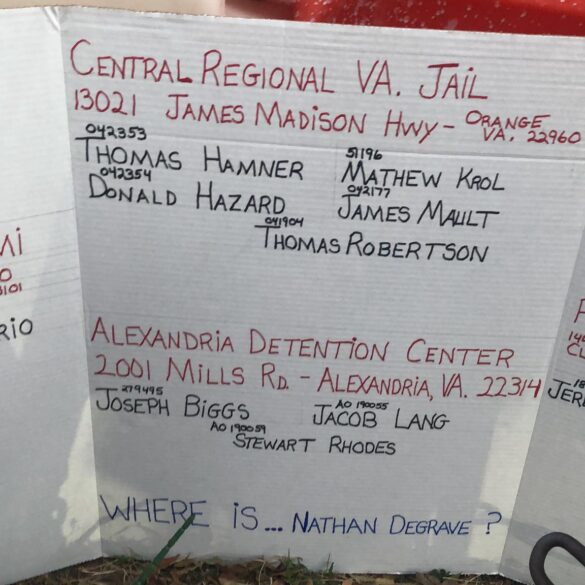 CENTRAL REGIONAL VA. JAIL
13021 JAMES MADISON HWY - ORANGE VA. 22960
042353 51196
THOMAS HAMNER MATHEW KROL
042354 042177
DONALD HAZARD JAMES MAULT
041904
THOMAS ROBERTSON
ALEXANDRIA DETENTION CENTER
2001 MILLS RD. - ALEXANDRIA, VA. 22314
279495 AO 190055
JOSEPH BIGGS JACOB LANG
AO 190059
STEWART RHODES
WHERE IS... NATHAN DEGRAVE ?